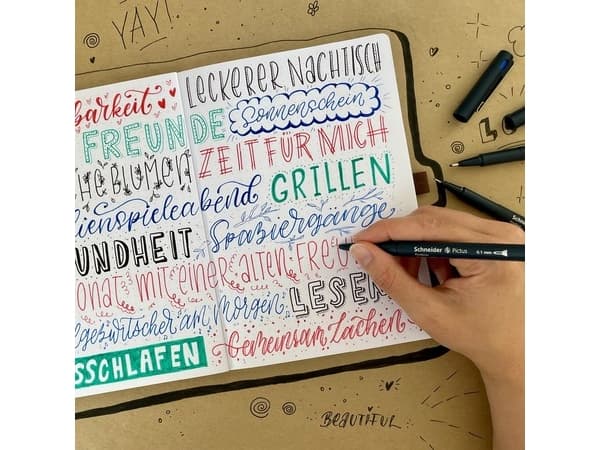 YAY!
LECKERER NACHTISCH
barkeit
Sonnenschein
FREUNDE
ZEIT FÜR MICH
HE BLUMEN
GRILLEN
ienspieleabend
Spaziergänge
UNDHEIT
onat mit einer alten FREU
LESEN
gezwitscher am morgen
Gemeinsam Lachen
SSCHLAFEN
Schneider Pictus 0.1 mm
BEAUTIFUL